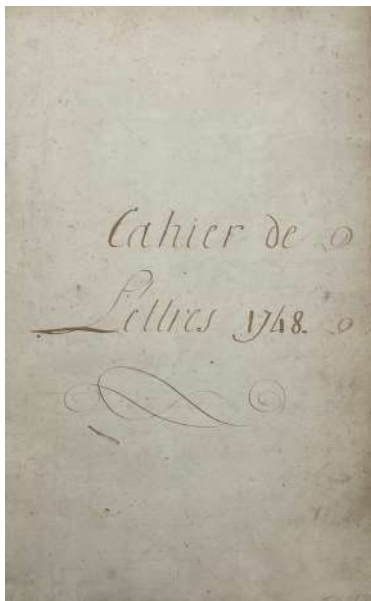 Cahier de
Lettres 1748.